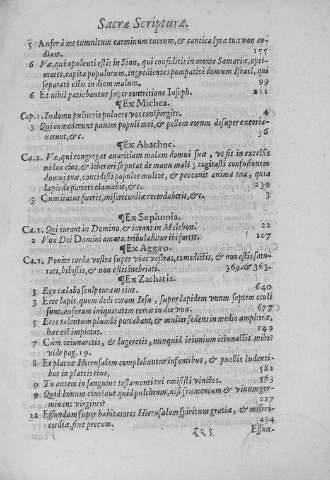 Sacræ Scripturæ.
5 Aufer à me tumultum carminum tuorum, & cantica lyræ tuæ non audiam.
155
6 Væ, qui opulenti estis in Sion, qui confiditis in monte Samariæ, optimates, capita populorum, ingredientes pompaticè domum Israel, qui
separati estis in diem malum.
99
6 Et nihil patiebantur super contritione Ioseph.
211
¶Ex Michea.
Cap. 1. In domo pulueris puluere vos conspergite.
4
3 Qui comederunt panem populi mei, & pellem eorum desuper excoriauerunt, &c.
36
¶Ex Abachuc.
Ca. 2. Væ, qui congregat auaritiam malam domui suæ, vt sit in excelso
nidus eius, & liberari se putat de manu mali; cogitasti confusionem
domui tuæ, concidisti populos multos, & peccauit anima tua, quia
lapis de pariete clamabit, &c.
239
3 Cum iratus fueris, misericordiæ recordaberis, &c.
3
¶Ex Sophonia.
Ca. 1. Qui iurant in Domino, & iurant in Melchon.
22
2 Vox Dei Domini amara, tribulabitur ibi fortis.
107
¶Ex Aggæo.
Ca. 1. Ponite corda vestra super vias vestras, comedistis, & non estis saturati, bibistis, & non estis inebriati.
369. & 363.
¶Ex Zacharia.
3 Ego cælabo sculpturam eius.
640
3 Ecce lapis, quem dedi coram Iesu, super lapidem vnum septem oculi
sunt, auferam iniquitatem terræ in die vna.
677
5 Ecce talentum plumbi portabatur, & mulier sedens in medio amphoræ,
hæc est impietas.
249
7 Cum ieiunaretis, & lugeretis, nunquid ieiunium ieiunastis mihi?
vide pag. 19.
8 Et plateæ Hierusalem complebuntur infantibus, & puellis ludentibus in plateis eius.
582
9 Tu autem in sanguine testamenti tui emisisti vinctos.
563
9 Quid bonum eius aut quid pulchrum, nisi frumentum & vinum germinans virgines?
227
12 Effundam super habitatores Hierusalem spiritum gratiæ, & misericordiæ, siue precum.
434
Effun-